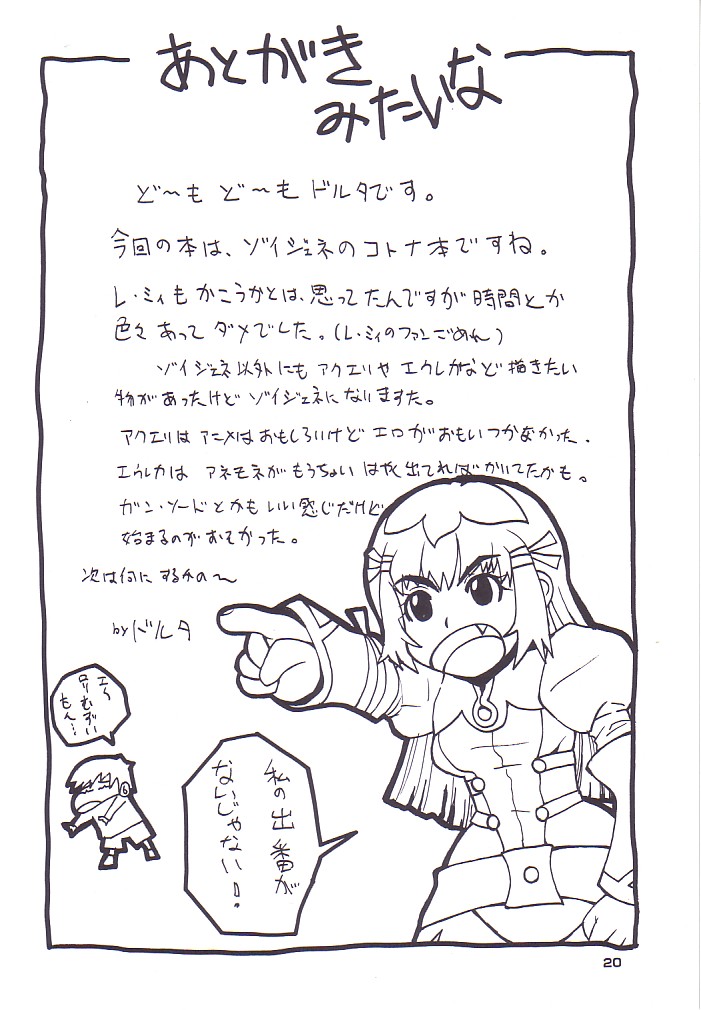 あとがき
みたいな
ど〜も ど〜も ドルタです。
今回の本は、ゾイジェネのコトナ本ですね。
レ・ミィもかこうかとは、思ってたんですが時間とか
色々あってダメでした。(レ・ミィのファンごめん)
ゾイジェネ以外にもアクエリや エウレカなど描きたい
物があったけどゾイジェネになりますた。
アクエリはアニメはおもしろいけどエロがおもいつかなかった.
エウレカは アネモネがもうちょい はやく出てればかいてたかも。
ガン・ソードとかもいい感じだけど
始まるのがおそかった。
次は何にするかの〜
byドルタ
エ〜
ロリむずい
もん…
私の出番が
ないじゃない!
20